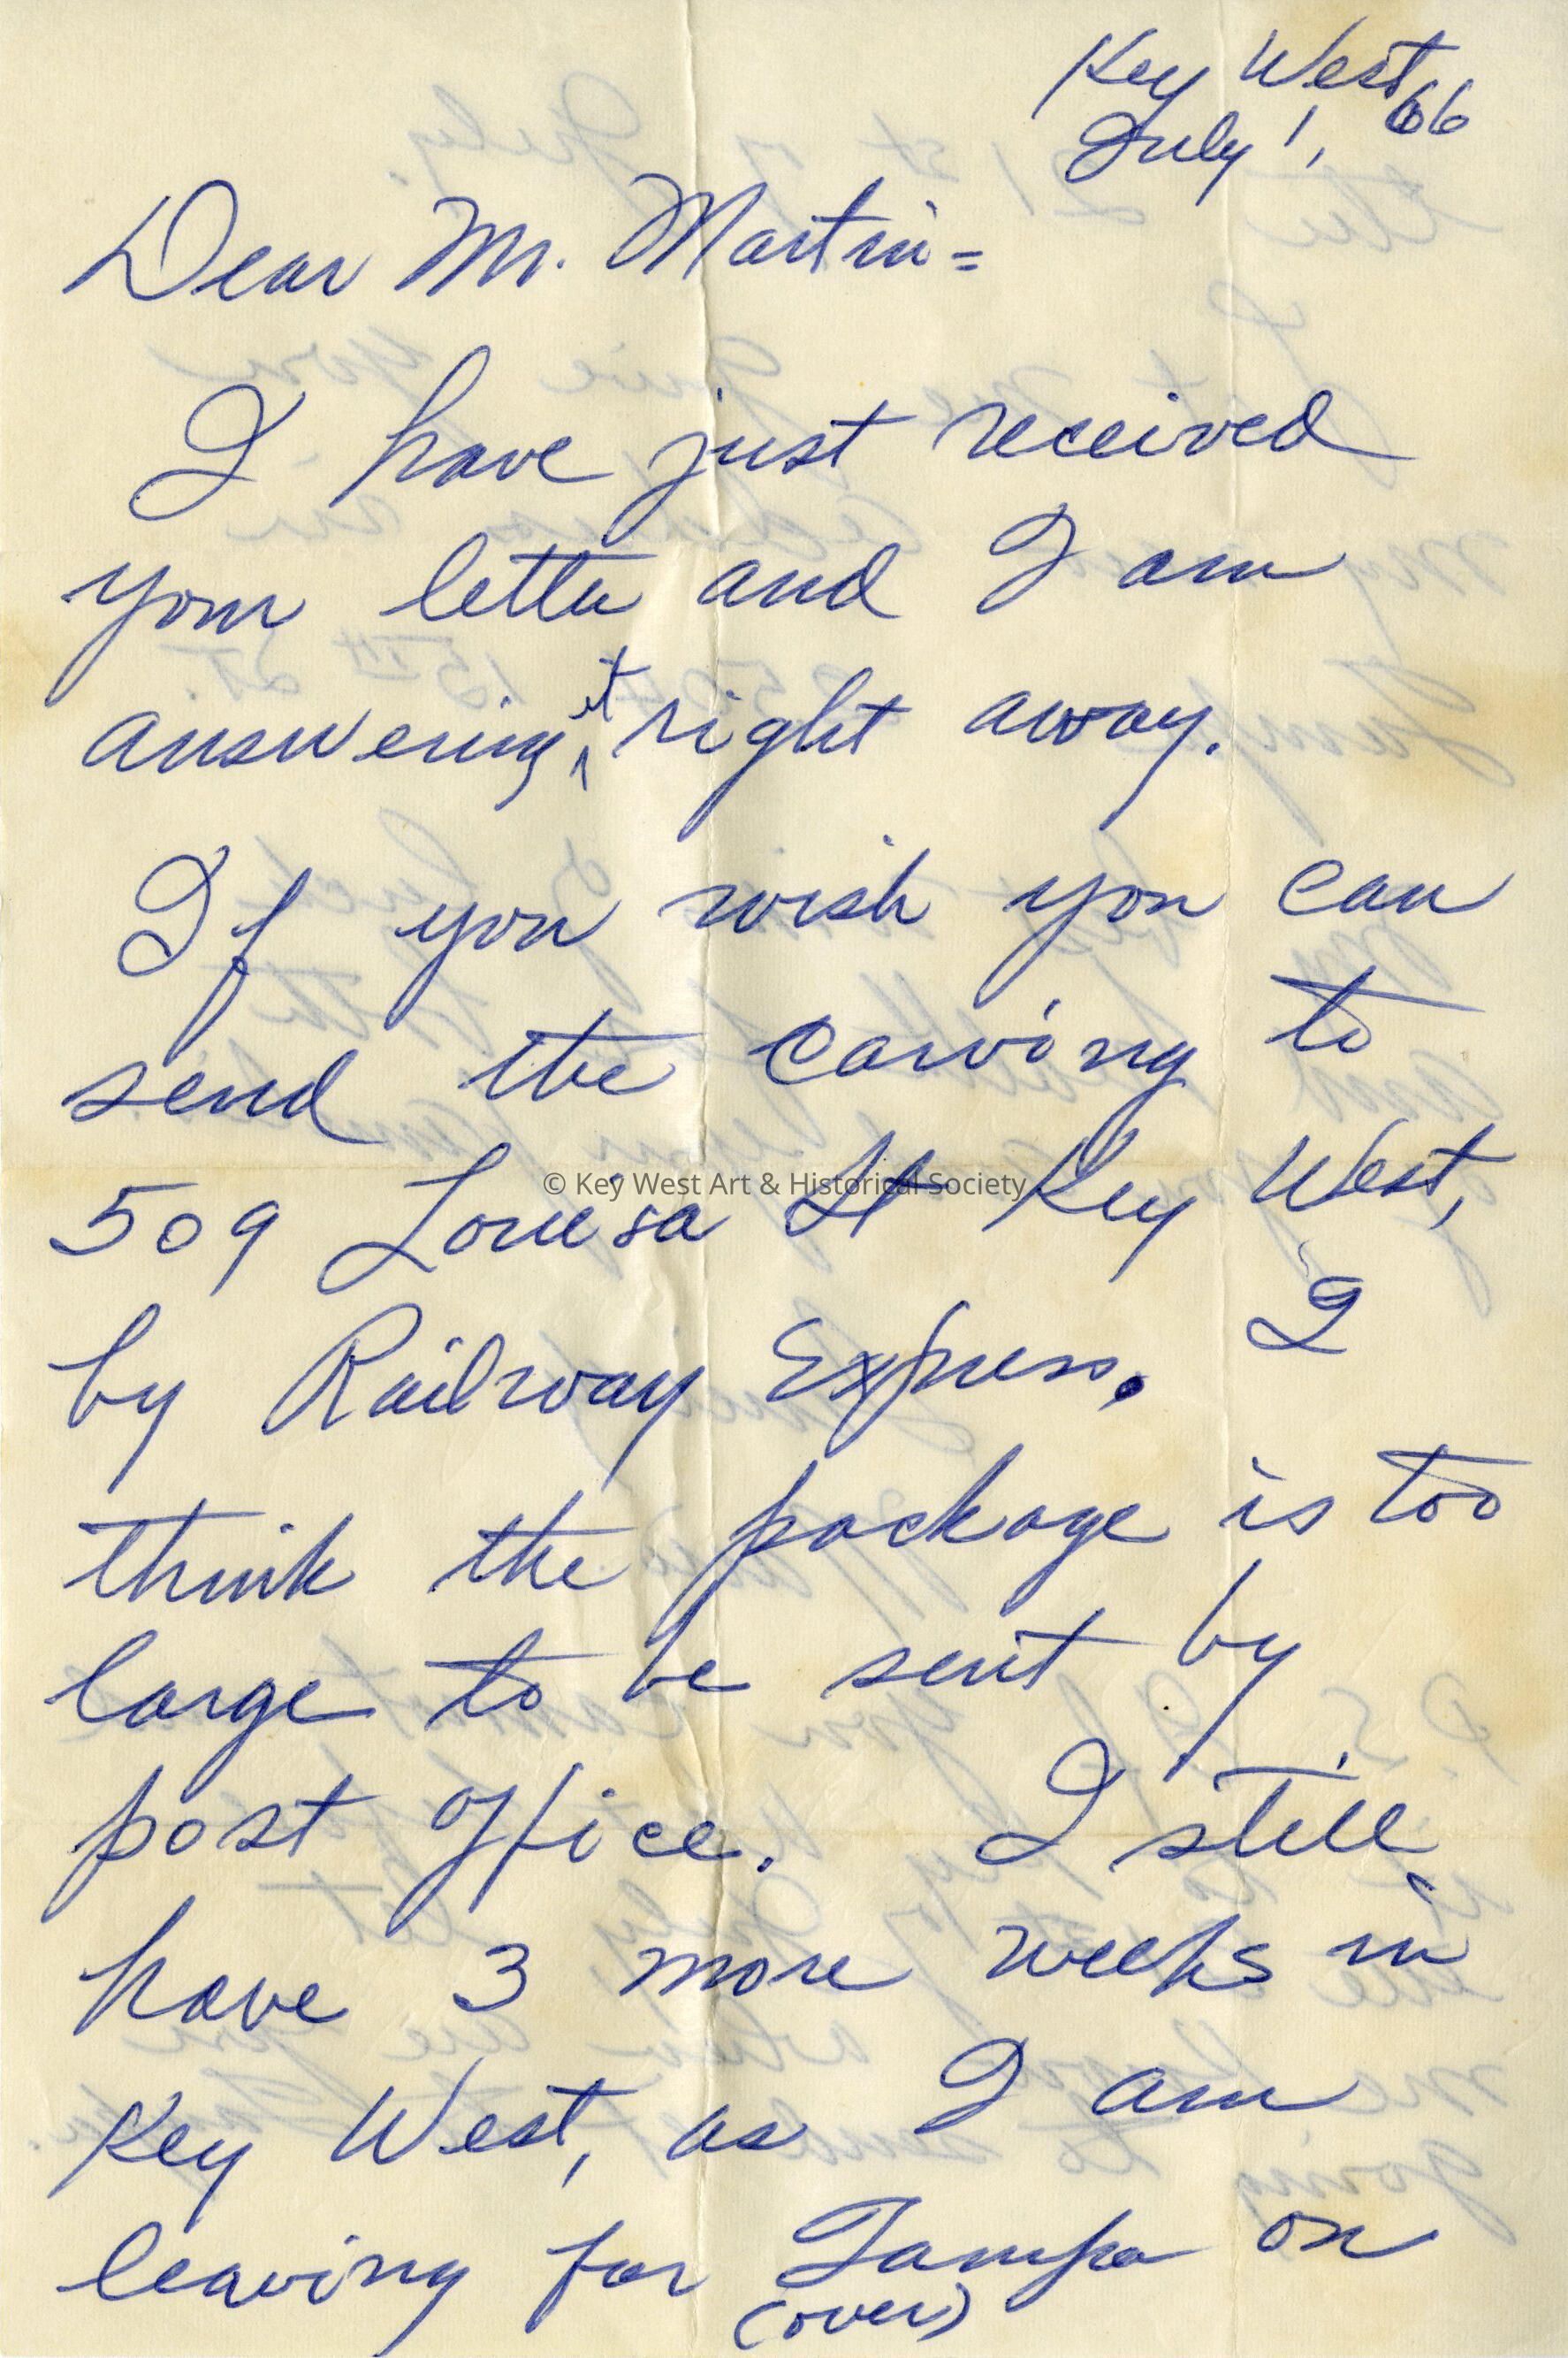 Key West,
July 1, 66
Dear Mr. Martin=
I have just received
your letter and I am
answering it right away.
If you wish you can
send the carving to
509 Louesa St Key West,
© Key West Art & Historical Society
by Railway Express. I
think the package is too
large to be sent by
post office. I still
have 3 more weeks in
Key West, as I am
leaving for Tampa on
(over)